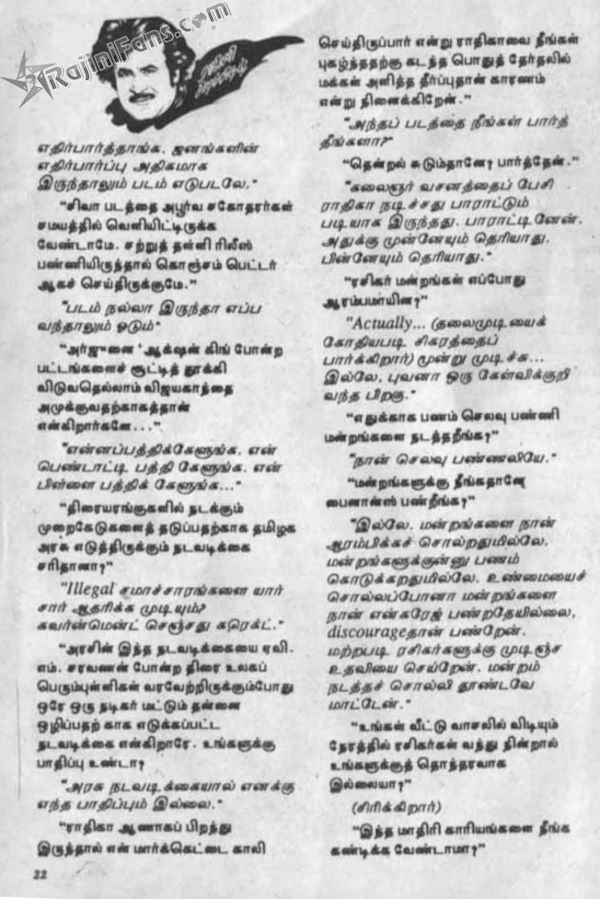 RajiniFans.com
எதிர்பார்த்தாங்க. ஜனங்களின்
எதிர்பார்ப்பு அதிகமாக
இருந்தாலும் படம் எடுபடலே."
"சிவா படத்தை அபூர்வ சகோதரர்கள்
சமயத்தில் வெளியிட்டிருக்க
வேண்டாமே. சற்றுத் தள்ளி ரிலீஸ்
பண்ணியிருந்தால் கொஞ்சம் பெட்டர்
ஆகச் செய்திருக்குமே."
"படம் நல்லா இருந்தா எப்ப
வந்தாலும் ஓடும்"
"அர்ஜுனை 'ஆக்ஷன் கிங் போன்ற
பட்டங்களைச் சூட்டித் தூக்கி
விடுவதெல்லாம் விஜயகாந்தை
அமுக்குவதற்காகத்தான்
என்கிறார்களே..."
"என்னப்பத்திக்கேளுங்க. என்
பெண்டாட்டி பத்தி கேளுங்க. என்
பிள்ளை பத்திக் கேளுங்க..."
"திரையரங்குகளில் நடக்கும்
முறைகேடுகளைத் தடுப்பதற்காக தமிழக
அரசு எடுத்திருக்கும் நடவடிக்கை
சரிதானா?"
"Illegal சமாச்சாரங்களை யார்
சார் ஆதரிக்க முடியும்?
கவர்ன்மென்ட் செஞ்சது கரெக்ட்."
"அரசின் இந்த நடவடிக்கையை ஏவி.
எம். சரவணன் போன்ற திரை உலகப்
பெரும்புள்ளிகள் வரவேற்றிருக்கும்போது
ஒரே ஒரு நடிகர் மட்டும் தன்னை
ஒழிப்பதற் காக எடுக்கப்பட்ட
நடவடிக்கை என்கிறாரே. உங்களுக்கு
பாதிப்பு உண்டா?
"அரசு நடவடிக்கையால் எனக்கு
எந்த பாதிப்பும் இல்லை."
"ராதிகா ஆணாகப் பிறந்து
இருந்தால் என் மார்க்கெட்டை காலி
22
செய்திருப்பார் என்று ராதிகாவை நீங்கள்
புகழ்ந்ததற்கு கடந்த பொதுத் தேர்தலில்
மக்கள் அளித்த தீர்ப்புதான் காரணம்
என்று நினைக்கிறேன்."
"அந்தப் படத்தை நீங்கள் பார்த்
தீங்களா?"
"தென்றல் சுடும்தானே? பார்த்தேன்."
"கலைஞர் வசனத்தைப் பேசி
ராதிகா நடிச்சது பாராட்டும்
படியாக இருந்தது. பாராட்டினேன்.
அதுக்கு முன்னேயும் தெரியாது.
பின்னேயும் தெரியாது."
"ரசிகர் மன்றங்கள் எப்போது
ஆரம்பமாயின?"
"Actually... (தலைமுடியைக்
கோதியபடி சிகரத்தைப்
பார்க்கிறார்) மூன்று முடிச்சு...
இல்லே, புவனா ஒரு கேள்விக்குறி
வந்த பிறகு."
"எதுக்காக பணம் செலவு பண்ணி
மன்றங்களை நடத்தறீங்க?"
"நான் செலவு பண்ணலியே."
"மன்றங்களுக்கு நீங்கதானே
பைனான்ஸ் பண்றீங்க?"
"இல்லே. மன்றங்களை நான்
ஆரம்பிக்கச் சொல்றதுமில்லே.
மன்றங்களுக்குன்னு பணம்
கொடுக்கறதுமில்லே. உண்மையைச்
சொல்லப்போனா மன்றங்களை
நான் என்கரேஜ் பண்றதேயில்லை,
discourageதான் பண்றேன்.
மற்றபடி ரசிகர்களுக்கு முடிஞ்ச
உதவியை செய்றேன். மன்றம்
நடத்தச் சொல்லி தூண்டவே
மாட்டேன்."
"உங்கள் வீட்டு வாசலில் விடியும்
நேரத்தில் ரசிகர்கள் வந்து நின்றால்
உங்களுக்குத் தொத்தரவாக
இல்லையா?"
(சிரிக்கிறார்)
"இந்த மாதிரி காரியங்களை நீங்க
கண்டிக்க வேண்டாமா?"